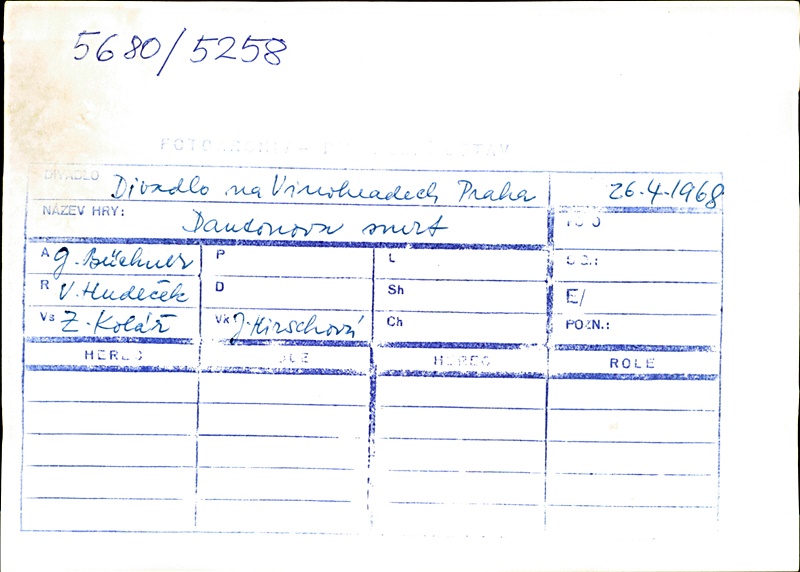 5680/5258
DIVADLO Divadlo na Vinohradech Praha 26.4.1968
NÁZEV HRY: Dantonova smrt
A G. Büchner P L
R V. Hudeček D Sh E/
Vs Z. Kolář Vk J. Hirschová Ch POZN.:
HEREC ROLE HEREC ROLE